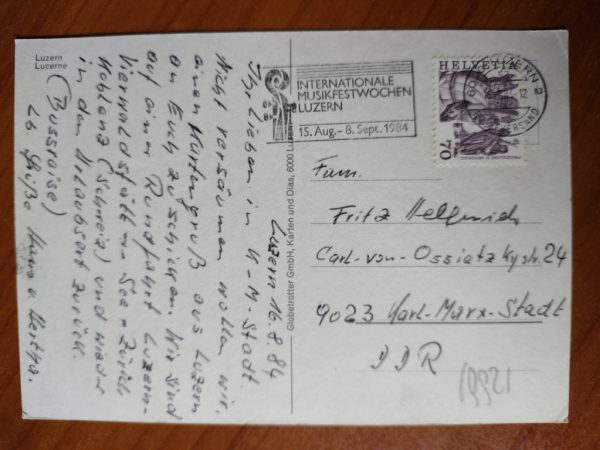 Luzern
Lucerne
Luzern 16.8.84
Ihr Lieben in K-M-Stadt.
Nicht versäumen wollen wir,
einen Kartengruß aus Luzern
an Euch zu schicken. Wir sind
auf einer Rundfahrt Luzern-
Vierwaldstätt See-Zürich
Koblenz (Schweiz) und wieder
in den Urlaubsort zurück.
(Bussreise)
Lb Grüße u. Hertha.
Globetrotter GmbH, Karten und Dias, 6000 Luzern
INTERNATIONALE
MUSIKFESTWOCHEN
LUZERN
15. Aug.- 8. Sept. 1984
HELVETIA
70
LUZERN 2
12
Fam.
Fritz
Carl-von-Ossietzkystr. 24
9023 Karl-Marx-Stadt
DDR